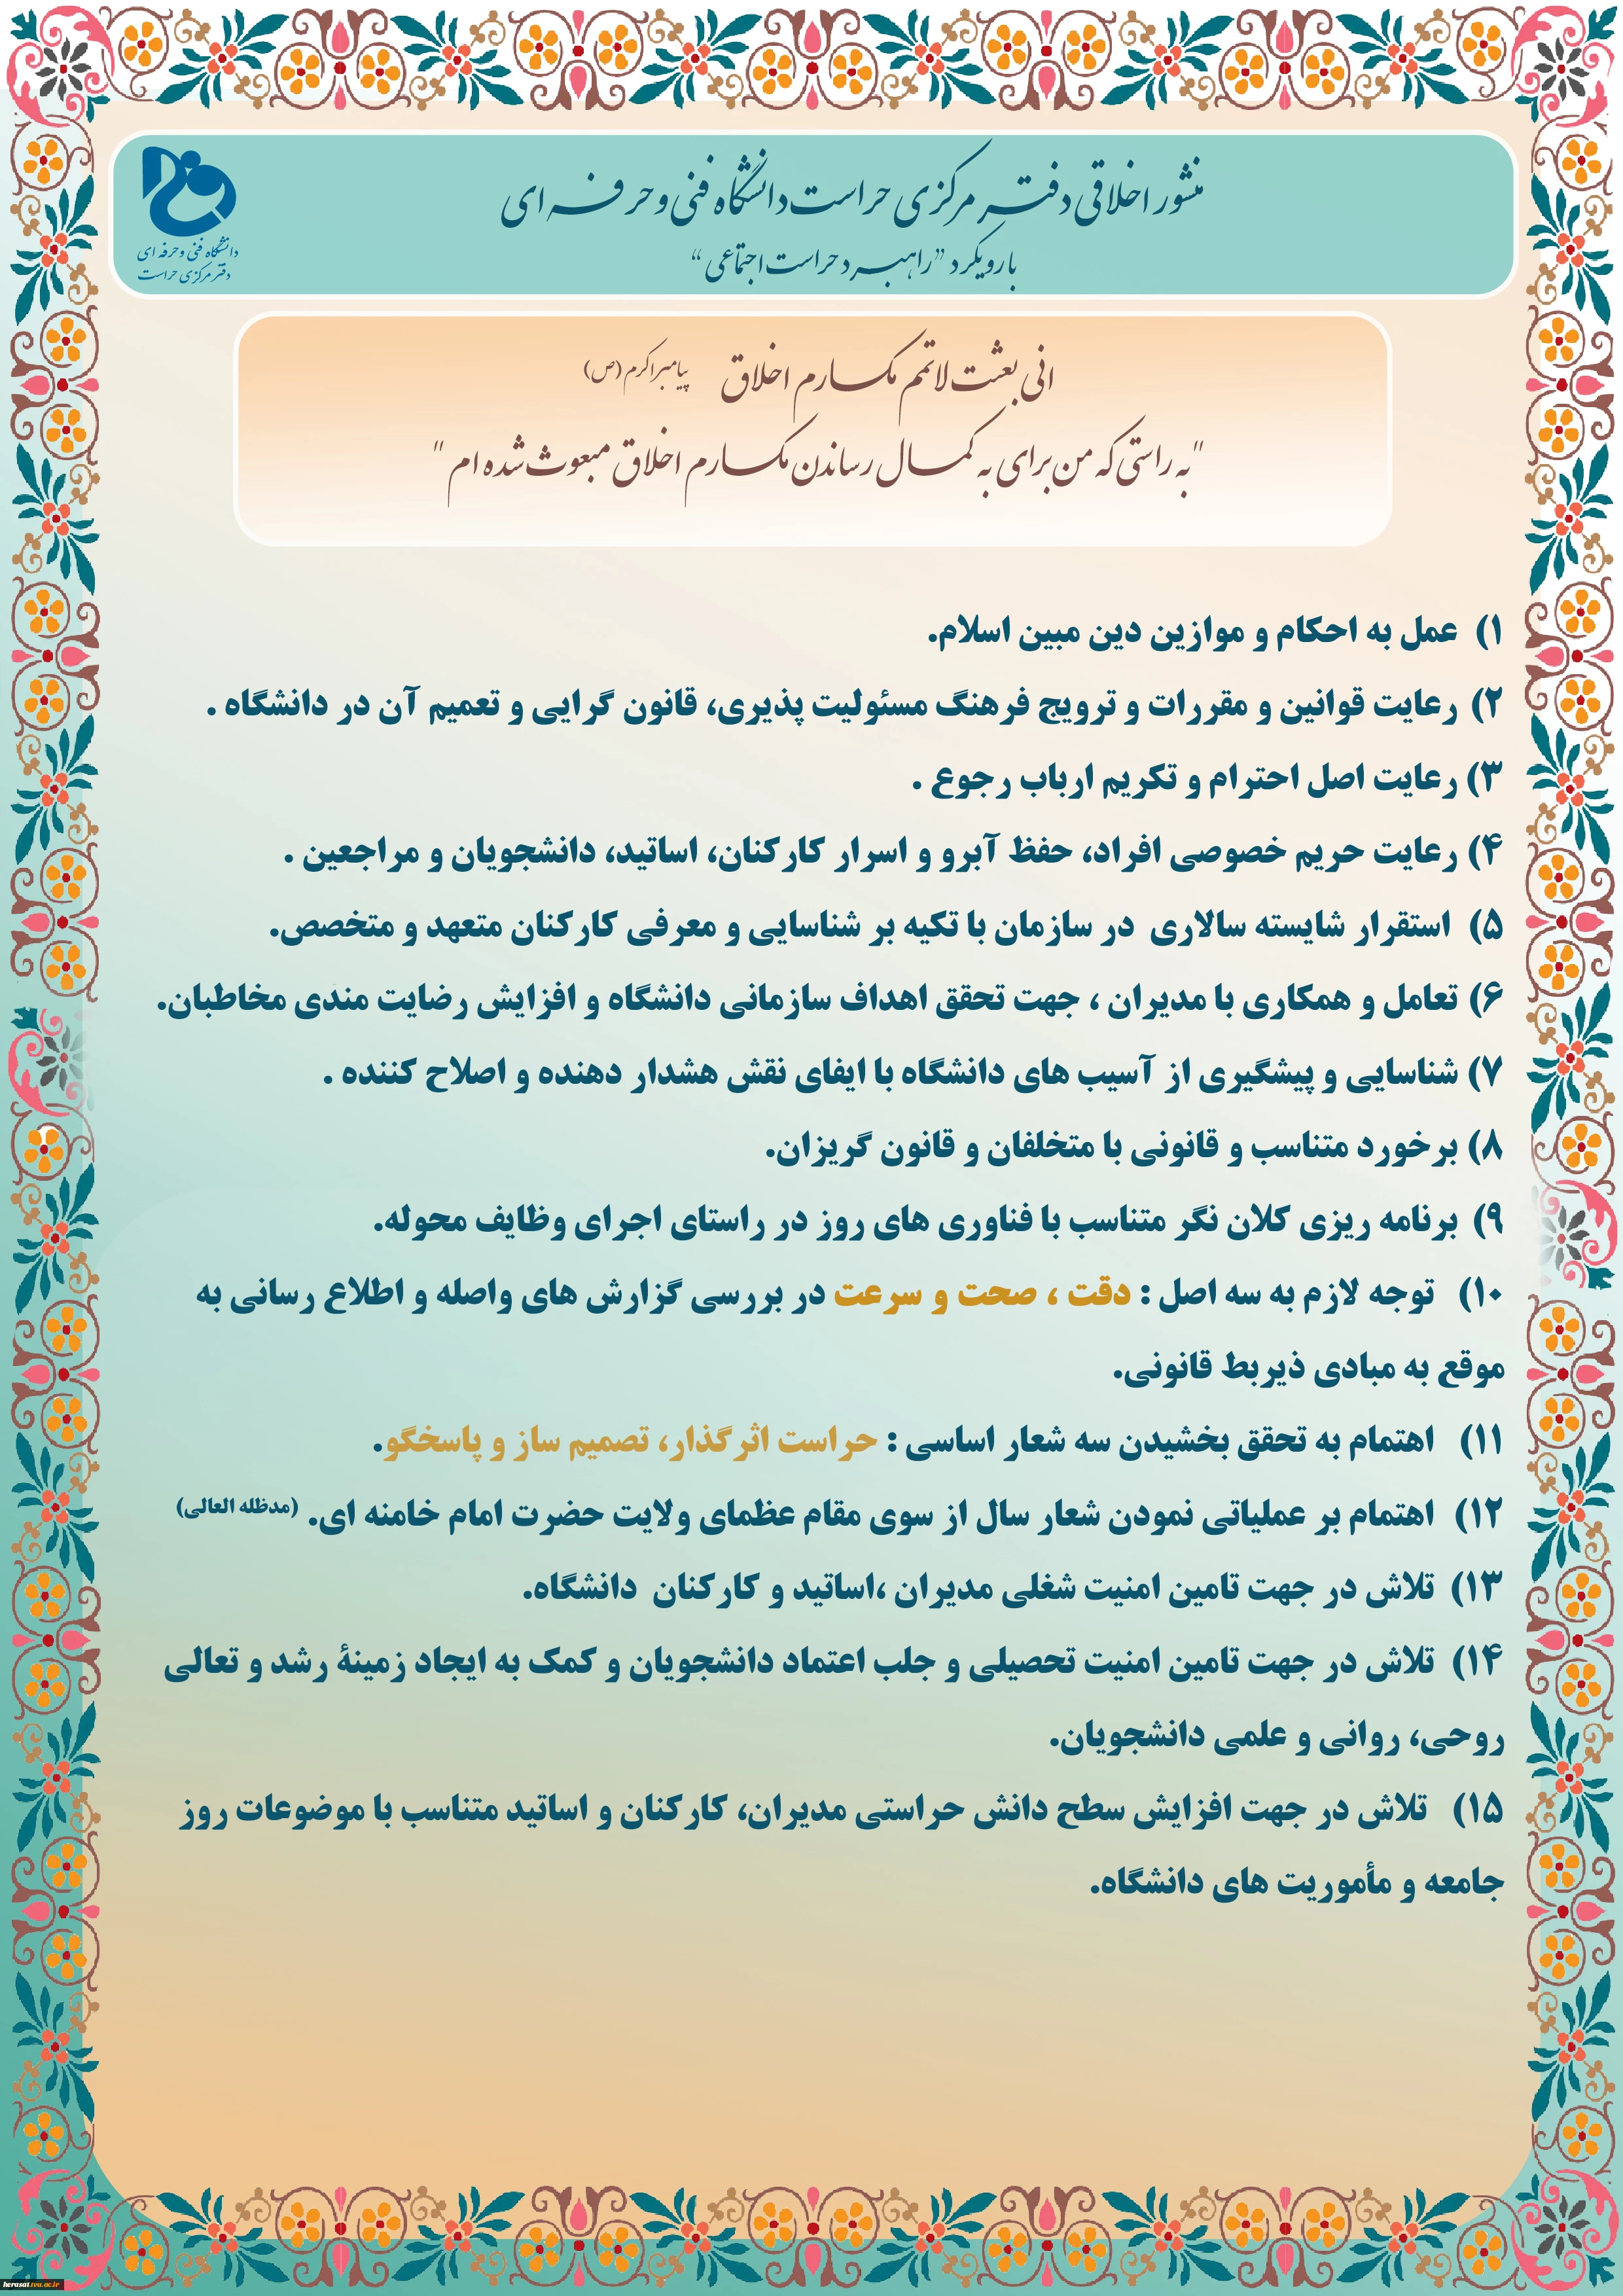 منشور اخلاقی دفتر مرکزی حراست دانشگاه فنی و حرفه ای
با رویکرد "راهبرد حراست اجتماعی"
دانشگاه فنی و حرفه ای
دفتر مرکزی حراست
انی بعثت لاتمم مکارم اخلاق پیامبر اکرم (ص)
"به راستی که من برای به کمال رساندن مکارم اخلاق مبعوث شده ام"
۱) عمل به احکام و موازین دین مبین اسلام.
۲) رعایت قوانین و مقررات و ترویج فرهنگ مسئولیت پذیری، قانون گرایی و تعمیم آن در دانشگاه .
۳) رعایت اصل احترام و تکریم ارباب رجوع .
۴) رعایت حریم خصوصی افراد، حفظ آبرو و اسرار کارکنان، اساتید، دانشجویان و مراجعین .
۵) استقرار شایسته سالاری در سازمان با تکیه بر شناسایی و معرفی کارکنان متعهد و متخصص.
۶) تعامل و همکاری با مدیران ، جهت تحقق اهداف سازمانی دانشگاه و افزایش رضایت مندی مخاطبان.
۷) شناسایی و پیشگیری از آسیب های دانشگاه با ایفای نقش هشدار دهنده و اصلاح کننده .
۸) برخورد متناسب و قانونی با متخلفان و قانون گریزان.
۹) برنامه ریزی کلان نگر متناسب با فناوری های روز در راستای اجرای وظایف محوله.
۱۰) توجه لازم به سه اصل : دقت ، صحت و سرعت در بررسی گزارش های واصله و اطلاع رسانی به
موقع به مبادی ذیربط قانونی.
۱۱) اهتمام به تحقق بخشیدن سه شعار اساسی : حراست اثرگذار، تصمیم ساز و پاسخگو.
۱۲) اهتمام بر عملیاتی نمودن شعار سال از سوی مقام عظمای ولایت حضرت امام خامنه ای. (مدظله العالی)
۱۳) تلاش در جهت تامین امنیت شغلی مدیران ،اساتید و کارکنان دانشگاه.
۱۴) تلاش در جهت تامین امنیت تحصیلی و جلب اعتماد دانشجویان و کمک به ایجاد زمینۀ رشد و تعالی
روحی، روانی و علمی دانشجویان.
۱۵) تلاش در جهت افزایش سطح دانش حراستی مدیران، کارکنان و اساتید متناسب با موضوعات روز
جامعه و مأموریت های دانشگاه.
herasat.tvu.ac.ir